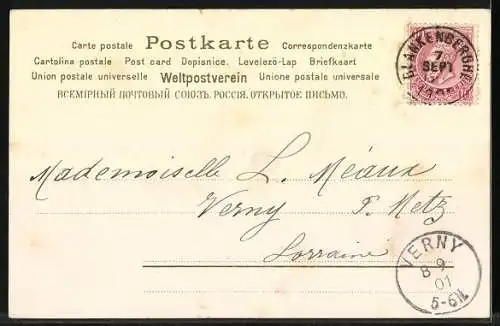 Carte postale Postkarte Correspondenzkarte
Cartolina postale Post card Dopisnice. Levelező-Lap Briefkaart
Union postale universelle Weltpostverein Unione postale universale
ВСЕМІРНЫЙ ПОЧТОВЫЙ СОЮЗЪ. РОССІЯ. ОТКРЫТОЕ ПИСЬМО.
BLANKENBERGHE
7
SEPT
Mademoiselle L. Méaux
Verny P. Metz
Lorraine
VERNY
8 9
01
5-6N